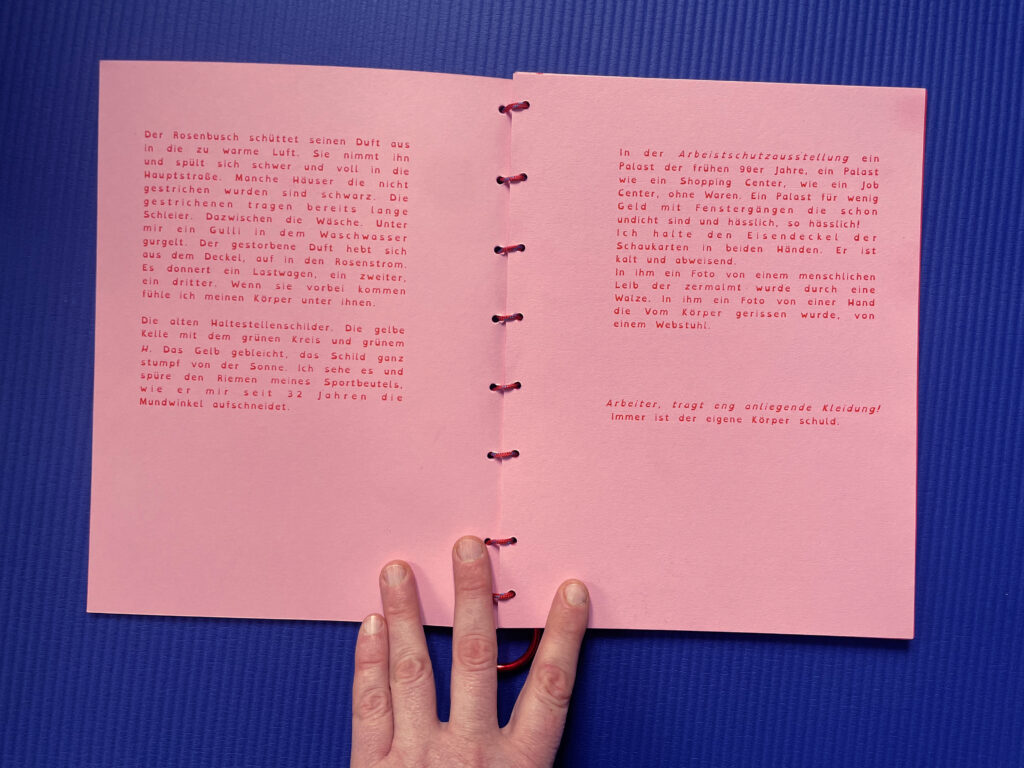 Der Rosenbusch schüttet seinen Duft aus
in die zu warme Luft. Sie nimmt ihn
und spült sich schwer und voll in die
Hauptstraße. Manche Häuser die nicht
gestrichen wurden sind schwarz. Die
gestrichenen tragen bereits lange
Schleier. Dazwischen die Wäsche. Unter
mir ein Gulli in dem Waschwasser
gurgelt. Der gestorbene Duft hebt sich
aus dem Deckel, auf in den Rosenstrom.
Es donnert ein Lastwagen, ein zweiter,
ein dritter. Wenn sie vorbei kommen
fühle ich meinen Körper unter ihnen.
Die alten Haltestellenschilder. Die gelbe
Kelle mit dem grünen Kreis und grünem
H. Das Gelb gebleicht, das Schild ganz
stumpf von der Sonne. Ich sehe es und
spüre den Riemen meines Sportbeutels,
wie er mir seit 32 Jahren die
Mundwinkel aufschneidet.
In der Arbeistschutzausstellung ein
Palast der frühen 90er Jahre, ein Palast
wie ein Shopping Center, wie ein Job
Center, ohne Waren. Ein Palast für wenig
Geld mit Fenstergängen die schon
undicht sind und hässlich, so hässlich!
Ich halte den Eisendeckel der
Schaukarten in beiden Händen. Er ist
kalt und abweisend.
In ihm ein Foto von einem menschlichen
Leib der zermalmt wurde durch eine
Walze. In ihm ein Foto von einer Hand
die Vom Körper gerissen wurde, von
einem Webstuhl.
Arbeiter, tragt eng anliegende Kleidung!
Immer ist der eigene Körper schuld.